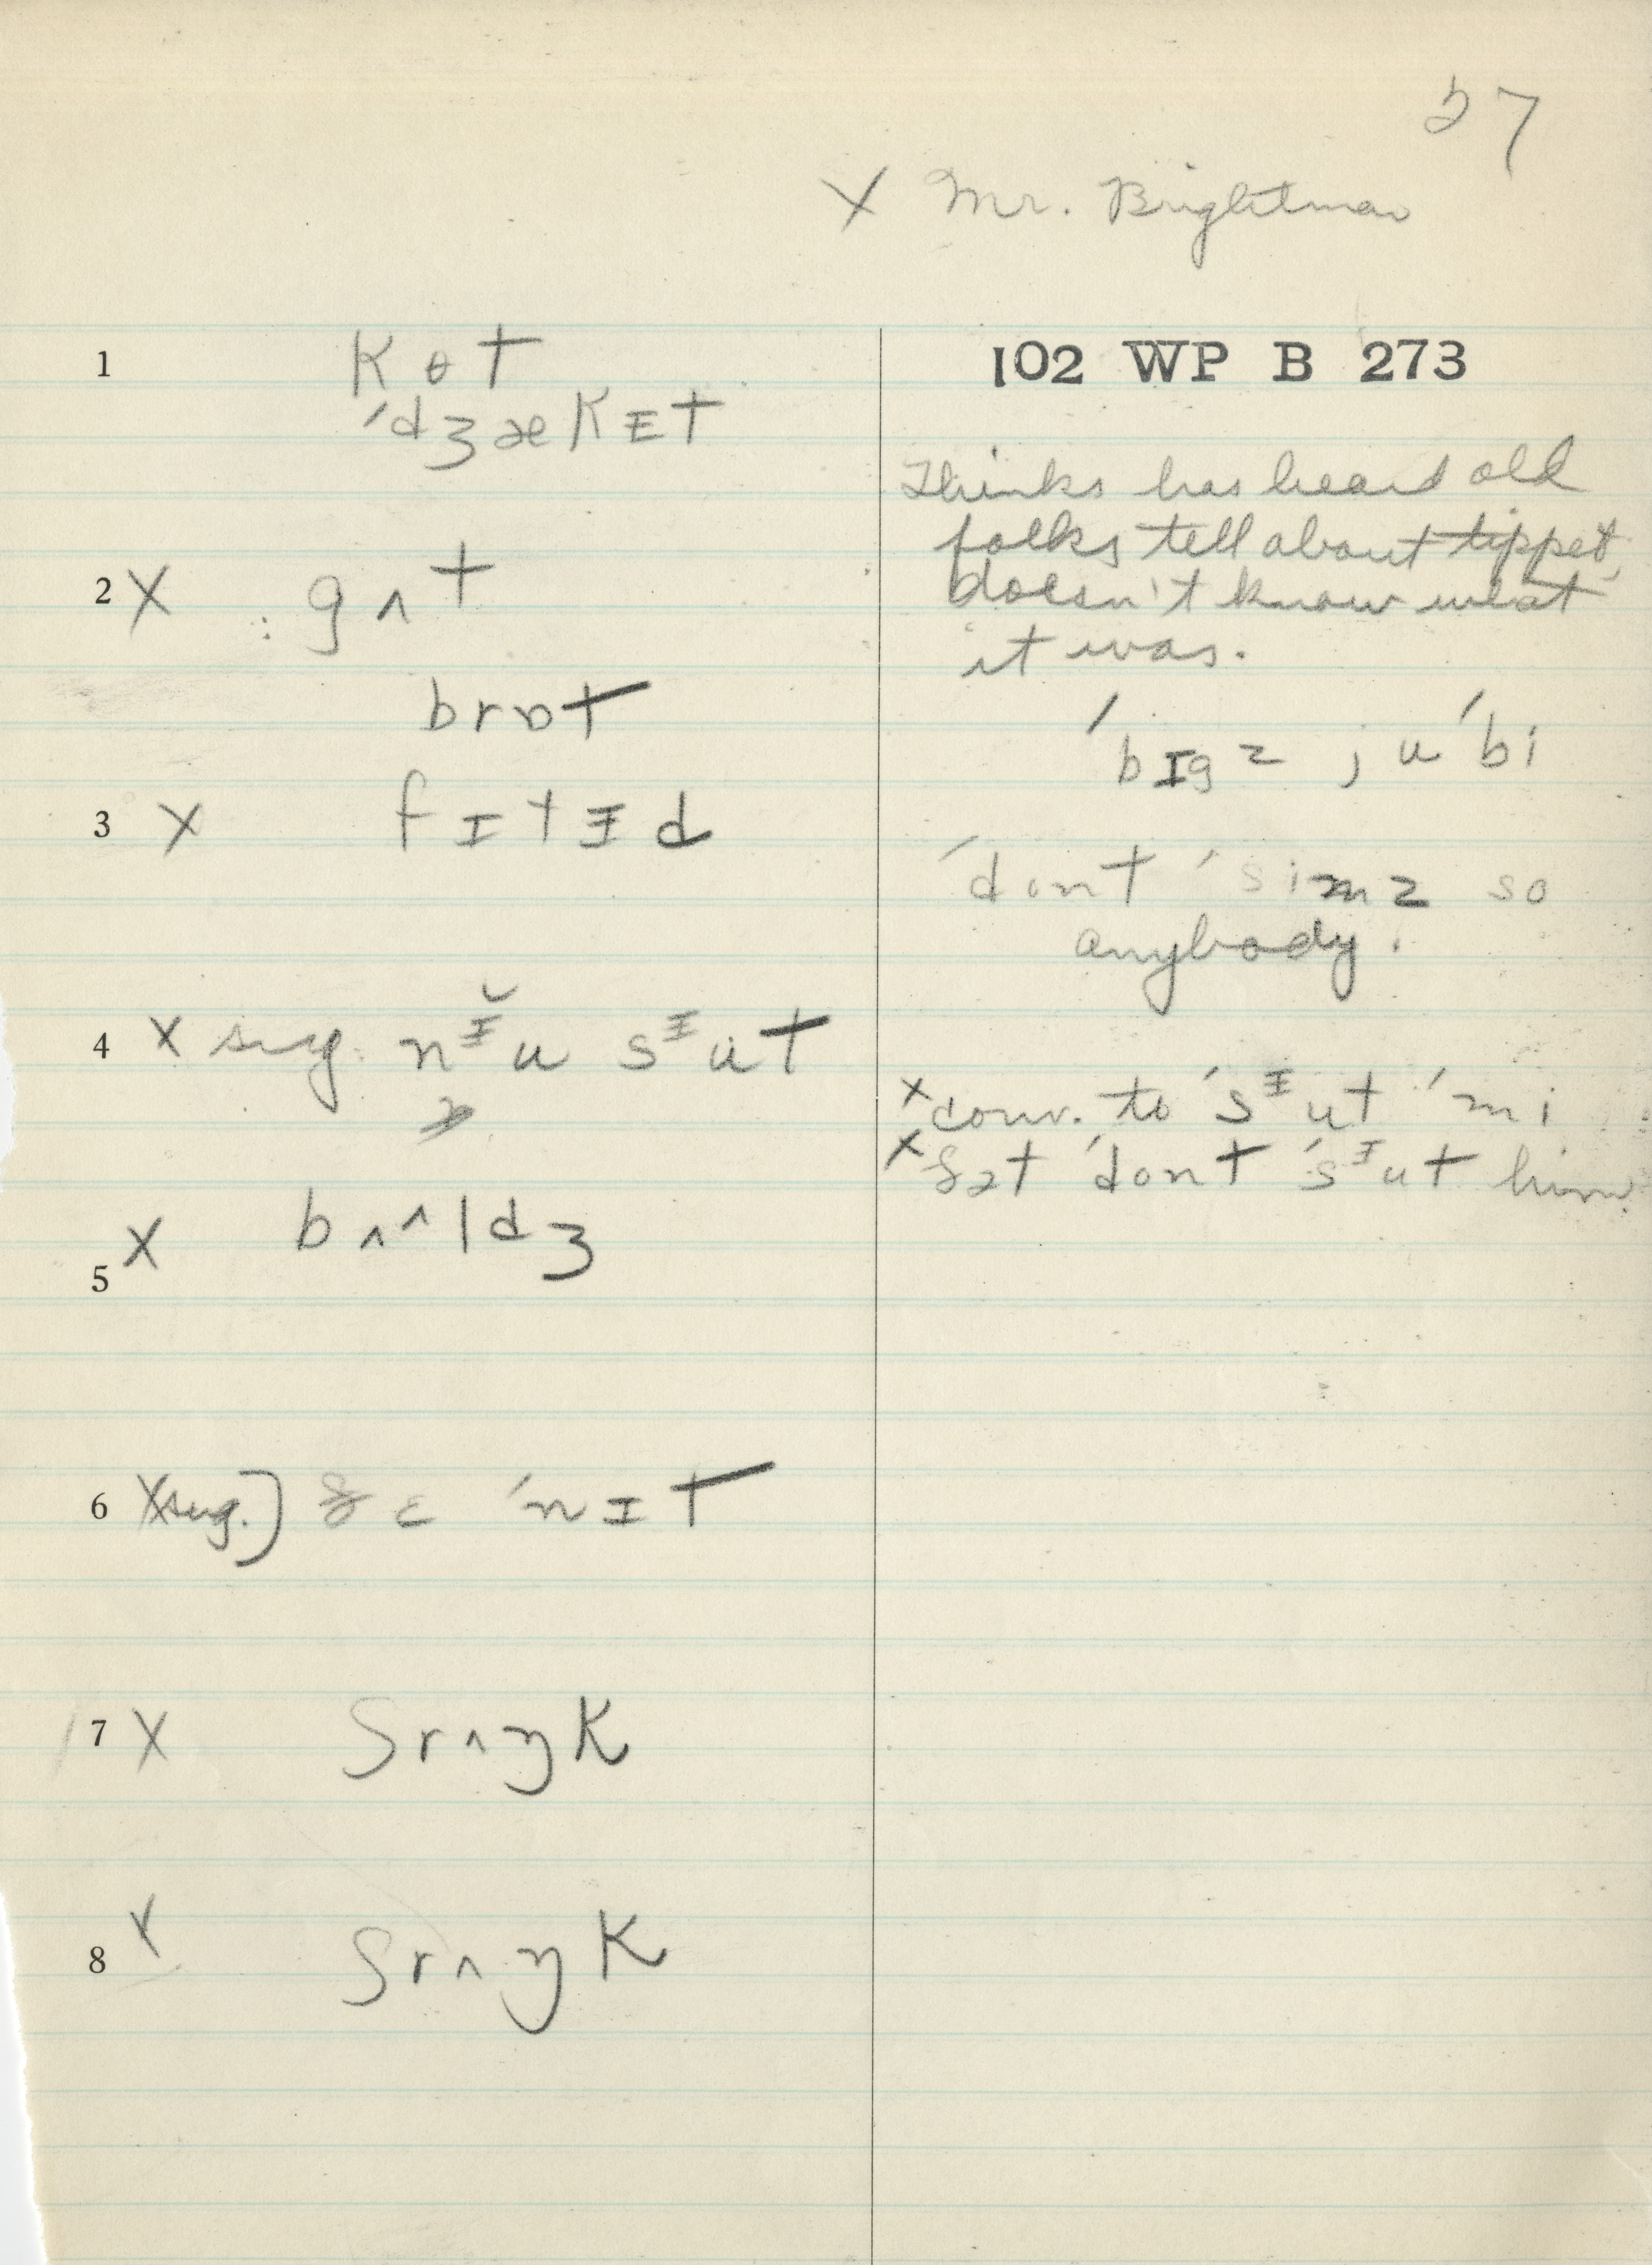 57
X Mr. Brightman
102 WP B 273
1 kɵt
ˈdʒækᵻt
Thinks has heard old
folks tell about tippet,
doesn't know what
it was.
2 X : gʌt
brɒt
ˈbɪgz ju ˈbi
3 X fɪtᵻd
ˈdont ˈsimz so
anybody.
4 X sug. nᵻ̆u sᵻut
X conv. to ˈsᵻut ˈmi
X ðət ˈdont ˈsᵻut him.
5 X bʌʌldʒ
6 X sug.] ðɛ ˈnɪt
7 X ʃrʌŋk
8 X ʃrʌŋk